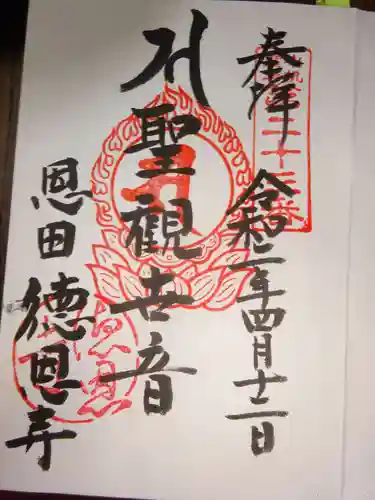 奉拝
令和二年四月十二日
聖觀世音
恩田 德恩寺